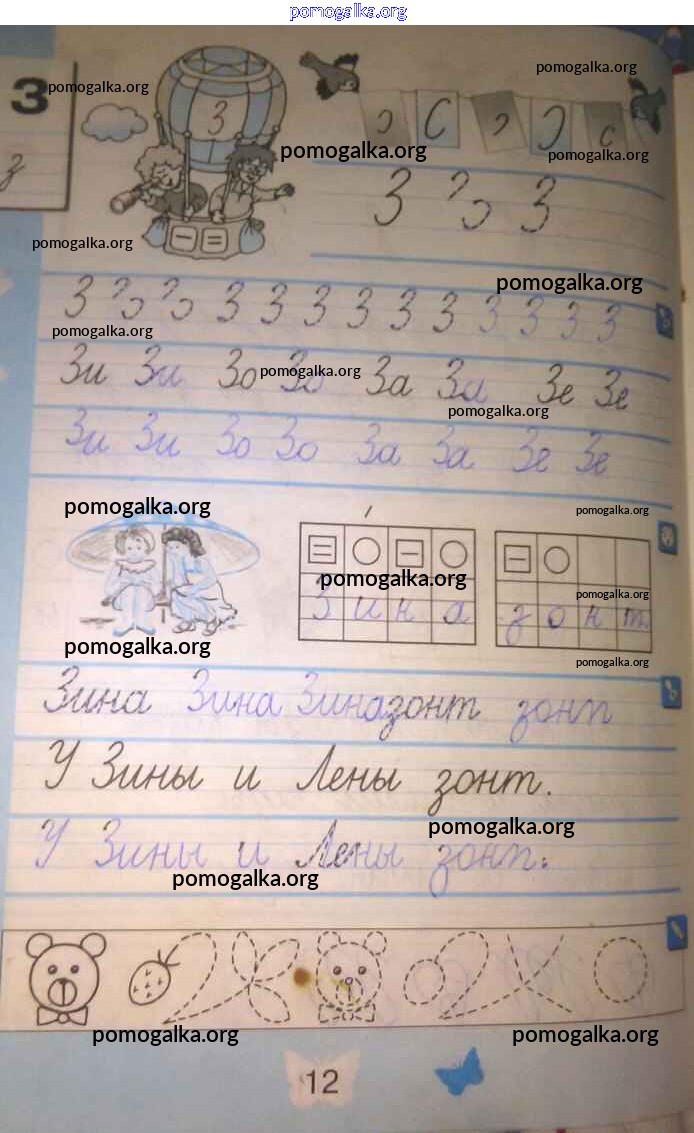 pomogalka.org
З
pomogalka.org
pomogalka.org
З
pomogalka.org
pomogalka.org
з
З З
pomogalka.org
pomogalka.org
З З З З З З З З З З З
pomogalka.org
Зи Зи Зо Зо За За Зе Зе
pomogalka.org
pomogalka.org
Зи Зи Зо Зо За За Зе Зе
pomogalka.org
pomogalka.org
pomogalka.org
pomogalka.org
Зина зонт
pomogalka.org
pomogalka.org
Зина Зина Зина зонт зонт
У Зины и Лены зонт.
pomogalka.org
У Зины и Лены зонт.
pomogalka.org
pomogalka.org
pomogalka.org
12